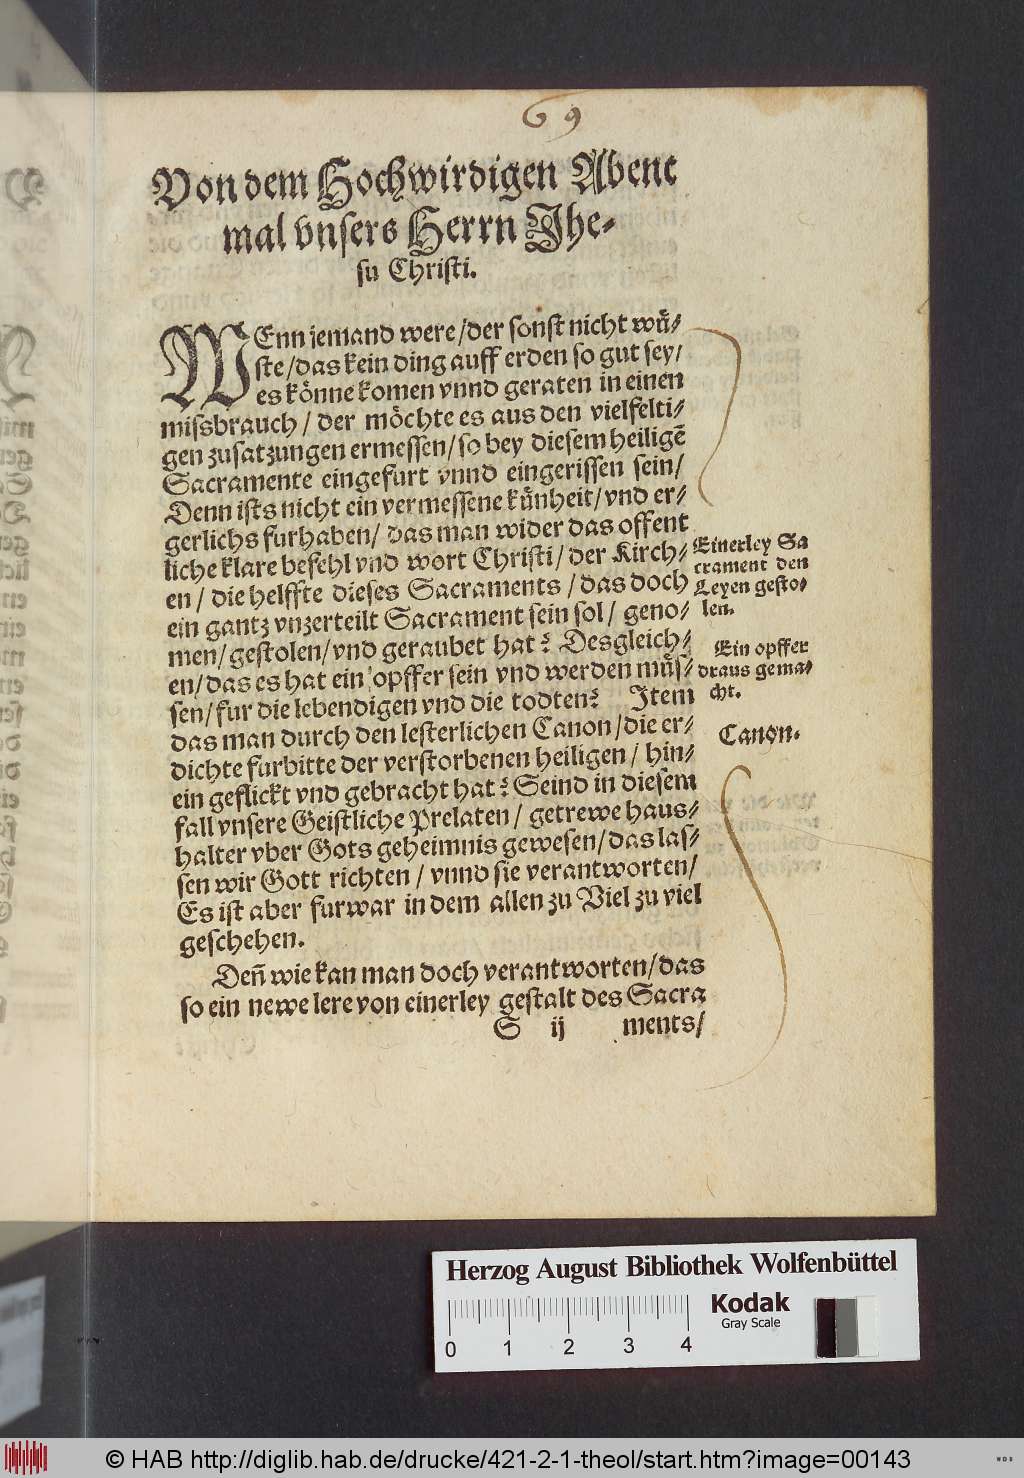 69
Von dem Hochwirdigen Abent
mal vnsers Herrn Jhe-
su Christi.
WEnn jemand were/der sonst nicht wü-
ste/das kein ding auff erden so gut sey/
es könne komen vnnd geraten in einen
missbrauch/der möchte es aus den vielfelti-
gen zusatzungen ermessen/so bey diesem heiligẽ
Sacramente eingefurt vnnd eingerissen sein/
Denn ists nicht ein vermessene künheit/vnd er-
gerlichs furhaben/das man wider das offent
liche klare befehl vnd wort Christi/der Kirch-
en/die helffte dieses Sacraments/das doch
ein gantz vnzerteilt Sacrament sein sol/geno-
men/gestolen/vnd geraubet hat? Desgleich-
en/das es hat ein opffer sein vnd werden müs-
sen/fur die lebendigen vnd die todten? Item
das man durch den lesterlichen Canon/die er-
dichte furbitte der verstorbenen heiligen/hin-
ein geflickt vnd gebracht hat? Seind in diesem
fall vnsere Geistliche Prelaten/getrewe haus-
halter vber Gots geheimnis gewesen/das las-
sen wir Gott richten/vnnd sie verantworten/
Es ist aber furwar in dem allen zu Viel zu viel
geschehen.
Deñ wie kan man doch verantworten/das
so ein newe lere von einerley gestalt des Sacra
S ij ments/
Einerley Sa
crament den
Leyen gesto-
len.
Ein opffer
draus gema-
cht.
Canon.
Herzog August Bibliothek Wolfenbüttel
Kodak
Gray Scale
0 1 2 3 4
© HAB http://diglib.hab.de/drucke/421-2-1-theol/start.htm?image=00143